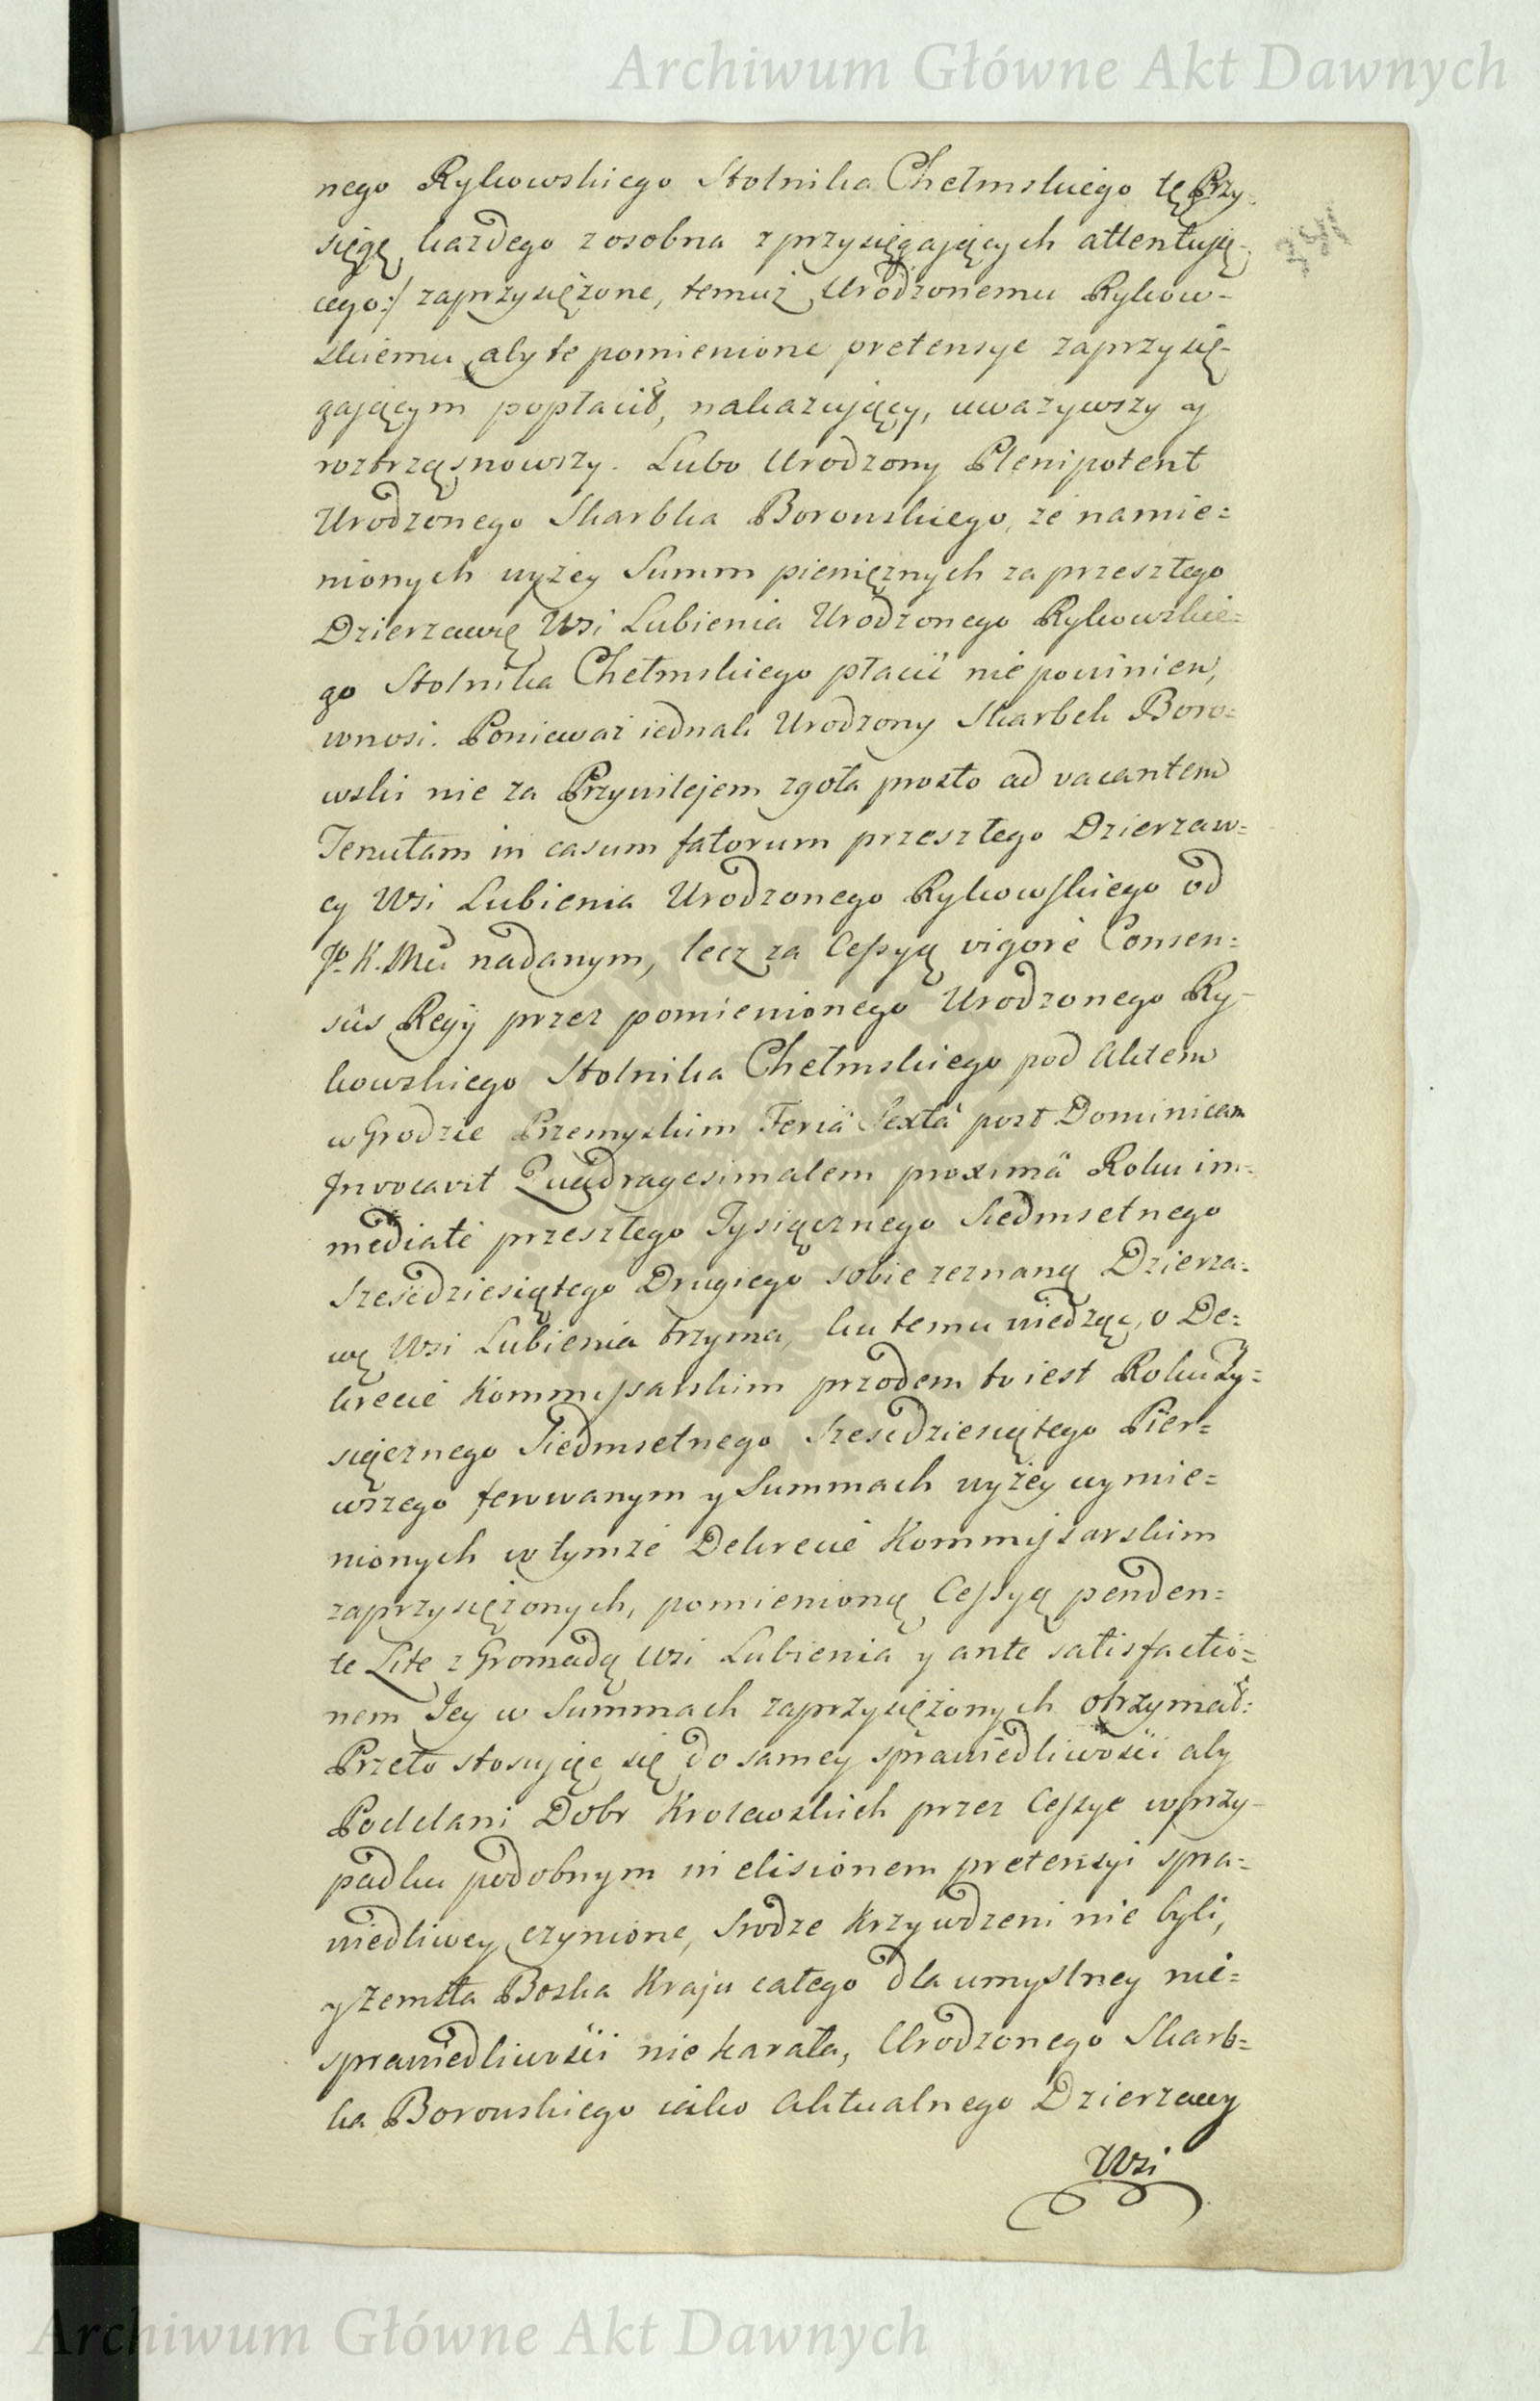 Archiwum Główne Akt Dawnych
nego Rykowskiego Stolnika Chełmskiego tę Przy-
sięgę każdego zosobna z przysięgaiących attentuią-
cego:/ zaprzysiężone, temuż Urodzonemu Rykow-
skiemu aby te pomienione pretensye zaprzysię-
gaiącym popłacił, nakazuiący, uważywszy y
roztrząsnowszy. Lubo Urodzony Plenipotent
Urodzonego Skarbka Borowskiego, że namie=
nionych wyżey Summ pieniężnych za przeszłego
Dzierzawcę Wsi Lubienia Urodzonego Rykowskie=
go Stolnika Chełmskiego płacić niepowinien,
wnosi. Ponieważ iednak Urodzony Skarbek Boro=
wski nie za Przywilejem zgoła prosto ad vacantem
Tenutam in casum fatorum przeszłego Dzierzaw=
cy Wsi Lubienia Urodzonego Rykowskiego od
J. K. Mci nadanym, lecz za Cessyą vigore Consen=
sûs Regij przez pomienionego Urodzonego Ry-
kowskiego Stolnika Chełmskiego pod Aktem
w Grodzie Przemyskim Feriâ Sextâ post Dominicam
Invocavit Quadragesimalem proximâ Roku im-
mediatè przeszłego Tysiącznego Siedmsetnego
Sześćdziesiątego Drugiego sobie zeznaną Dzierza=
wę Wsi Lubienia trzyma, ku temu wiedząc, o De=
krecie Kommissarskim przodem to iest Roku Ty=
siącznego Siedmsetnego Sześćdziesiątego Pier=
wszego ferowanym y Summach wyżey wymie=
nionych w tymże Dekrecie Kommissarskim
zaprzysiężonych, pomienioną Cessyą penden=
te Lite z Gromadą Wsi Lubienia y ante satisfactio=
nem Jey w Summach zaprzysiężonych otrzymał:
Przeto stosuiąc się do samey sprawiedliwości aby
Poddani Dobr Krolewskich przez Cessye w przy-
padku podobnym in elisionem pretensyi spra=
wiedliwey czynione, srodze krzywdzeni nie byli,
y zemsta Boska Kraju całego dla umyslney nie=
sprawiedliwości nie karała, Urodzonego Skarb=
ka Borowskiego iako Aktualnego Dzierzawcy
Wsi
Archiwum Główne Akt Dawnych